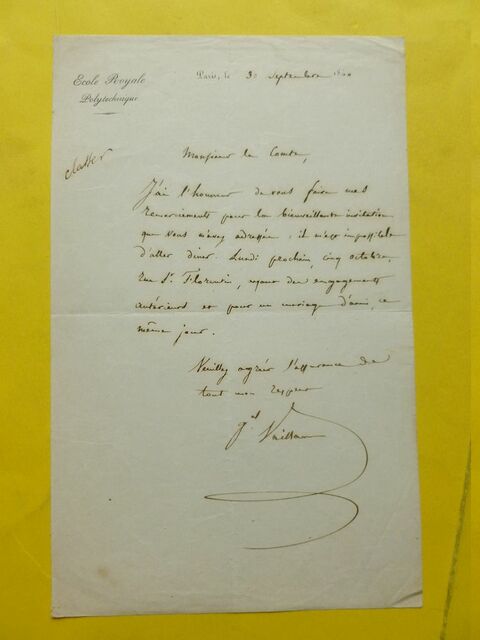 Ecole Royale
Polytechnique
Paris, le 30 Septembre
classer
Monsieur le Comte,
J'ai l'honneur de vous faire mes
remerciements pour la bienveillante invitation
que vous m'avez adressée ; il m'est impossible
d'aller diner Lundi prochain, cinq octobre,
rue St. Florentin, ayant des engagements
antérieurs et pour un mariage d'amis, ce
même jour.
Veuillez agréer l'assurance de
tout mon respect
gal Vaillant